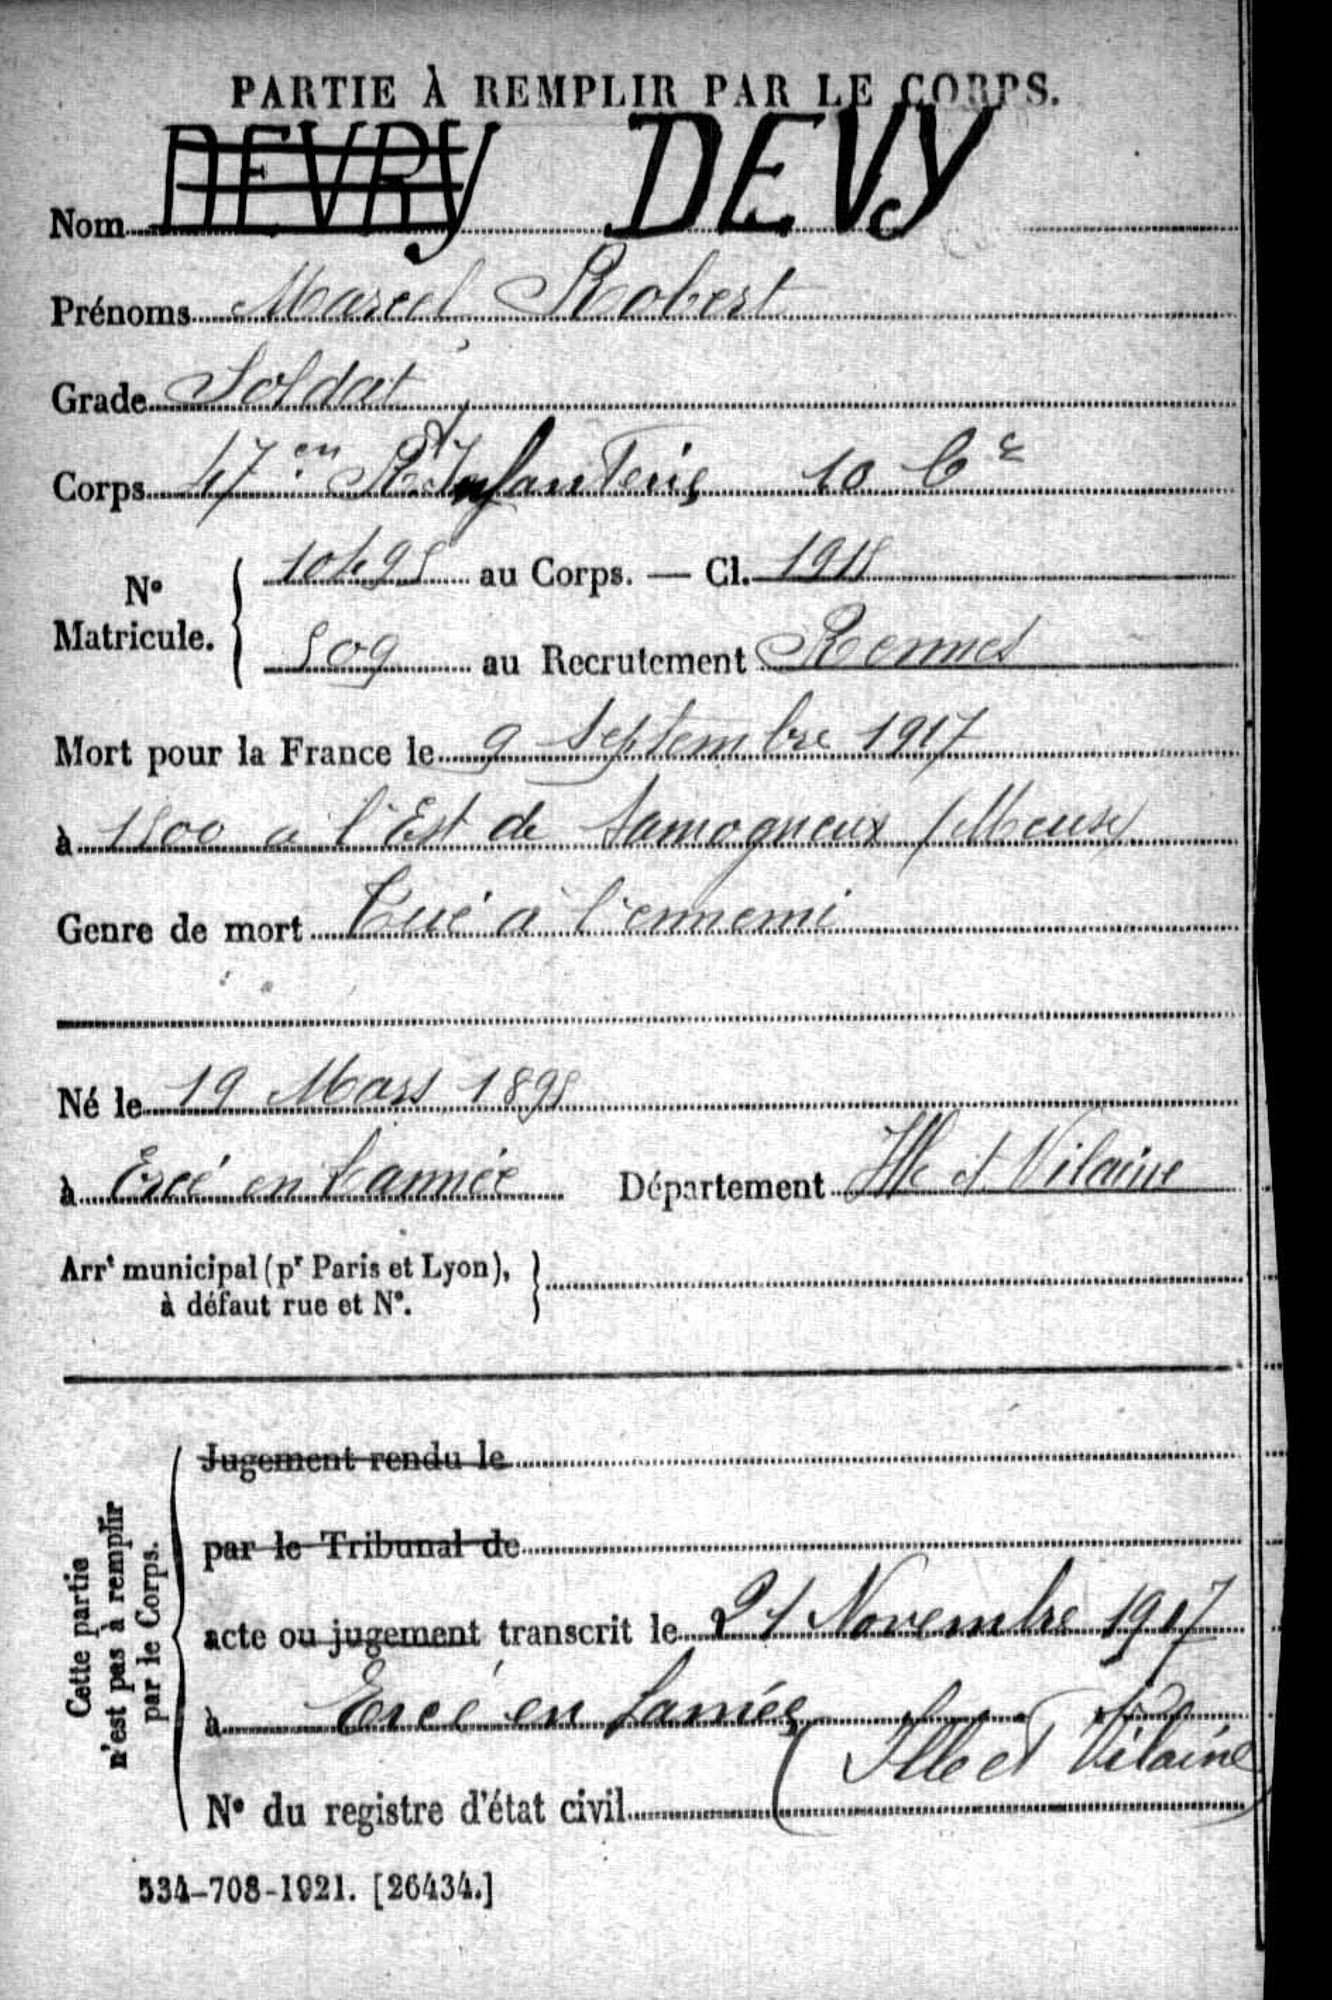 PARTIE À REMPLIR PAR LE CORPS.
Nom DEVRY DEVY
Prénoms Marcel Robert
Grade Soldat
Corps 47 en Rt Infanterie 10 Cie
N° Matricule. 10495 au Corps. — Cl. 1915
509 au Recrutement Rennes
Mort pour la France le 9 Septembre 1917
à 1500 a l'Est de Samogneux (Meuse)
Genre de mort Tué à l'ennemi
Né le 19 Mars 1895
à Ercé en Lamée Département Ille et Vilaine
Arrt municipal (pr Paris et Lyon),
à défaut rue et N°.
Cette partie
n'est pas à remplir
par le Corps.
Jugement rendu le
par le Tribunal de
acte ou jugement transcrit le 21 Novembre 1917
à Ercé en Lamée
(Ille et Vilaine)
N° du registre d'état civil
534-708-1921. [26434.]